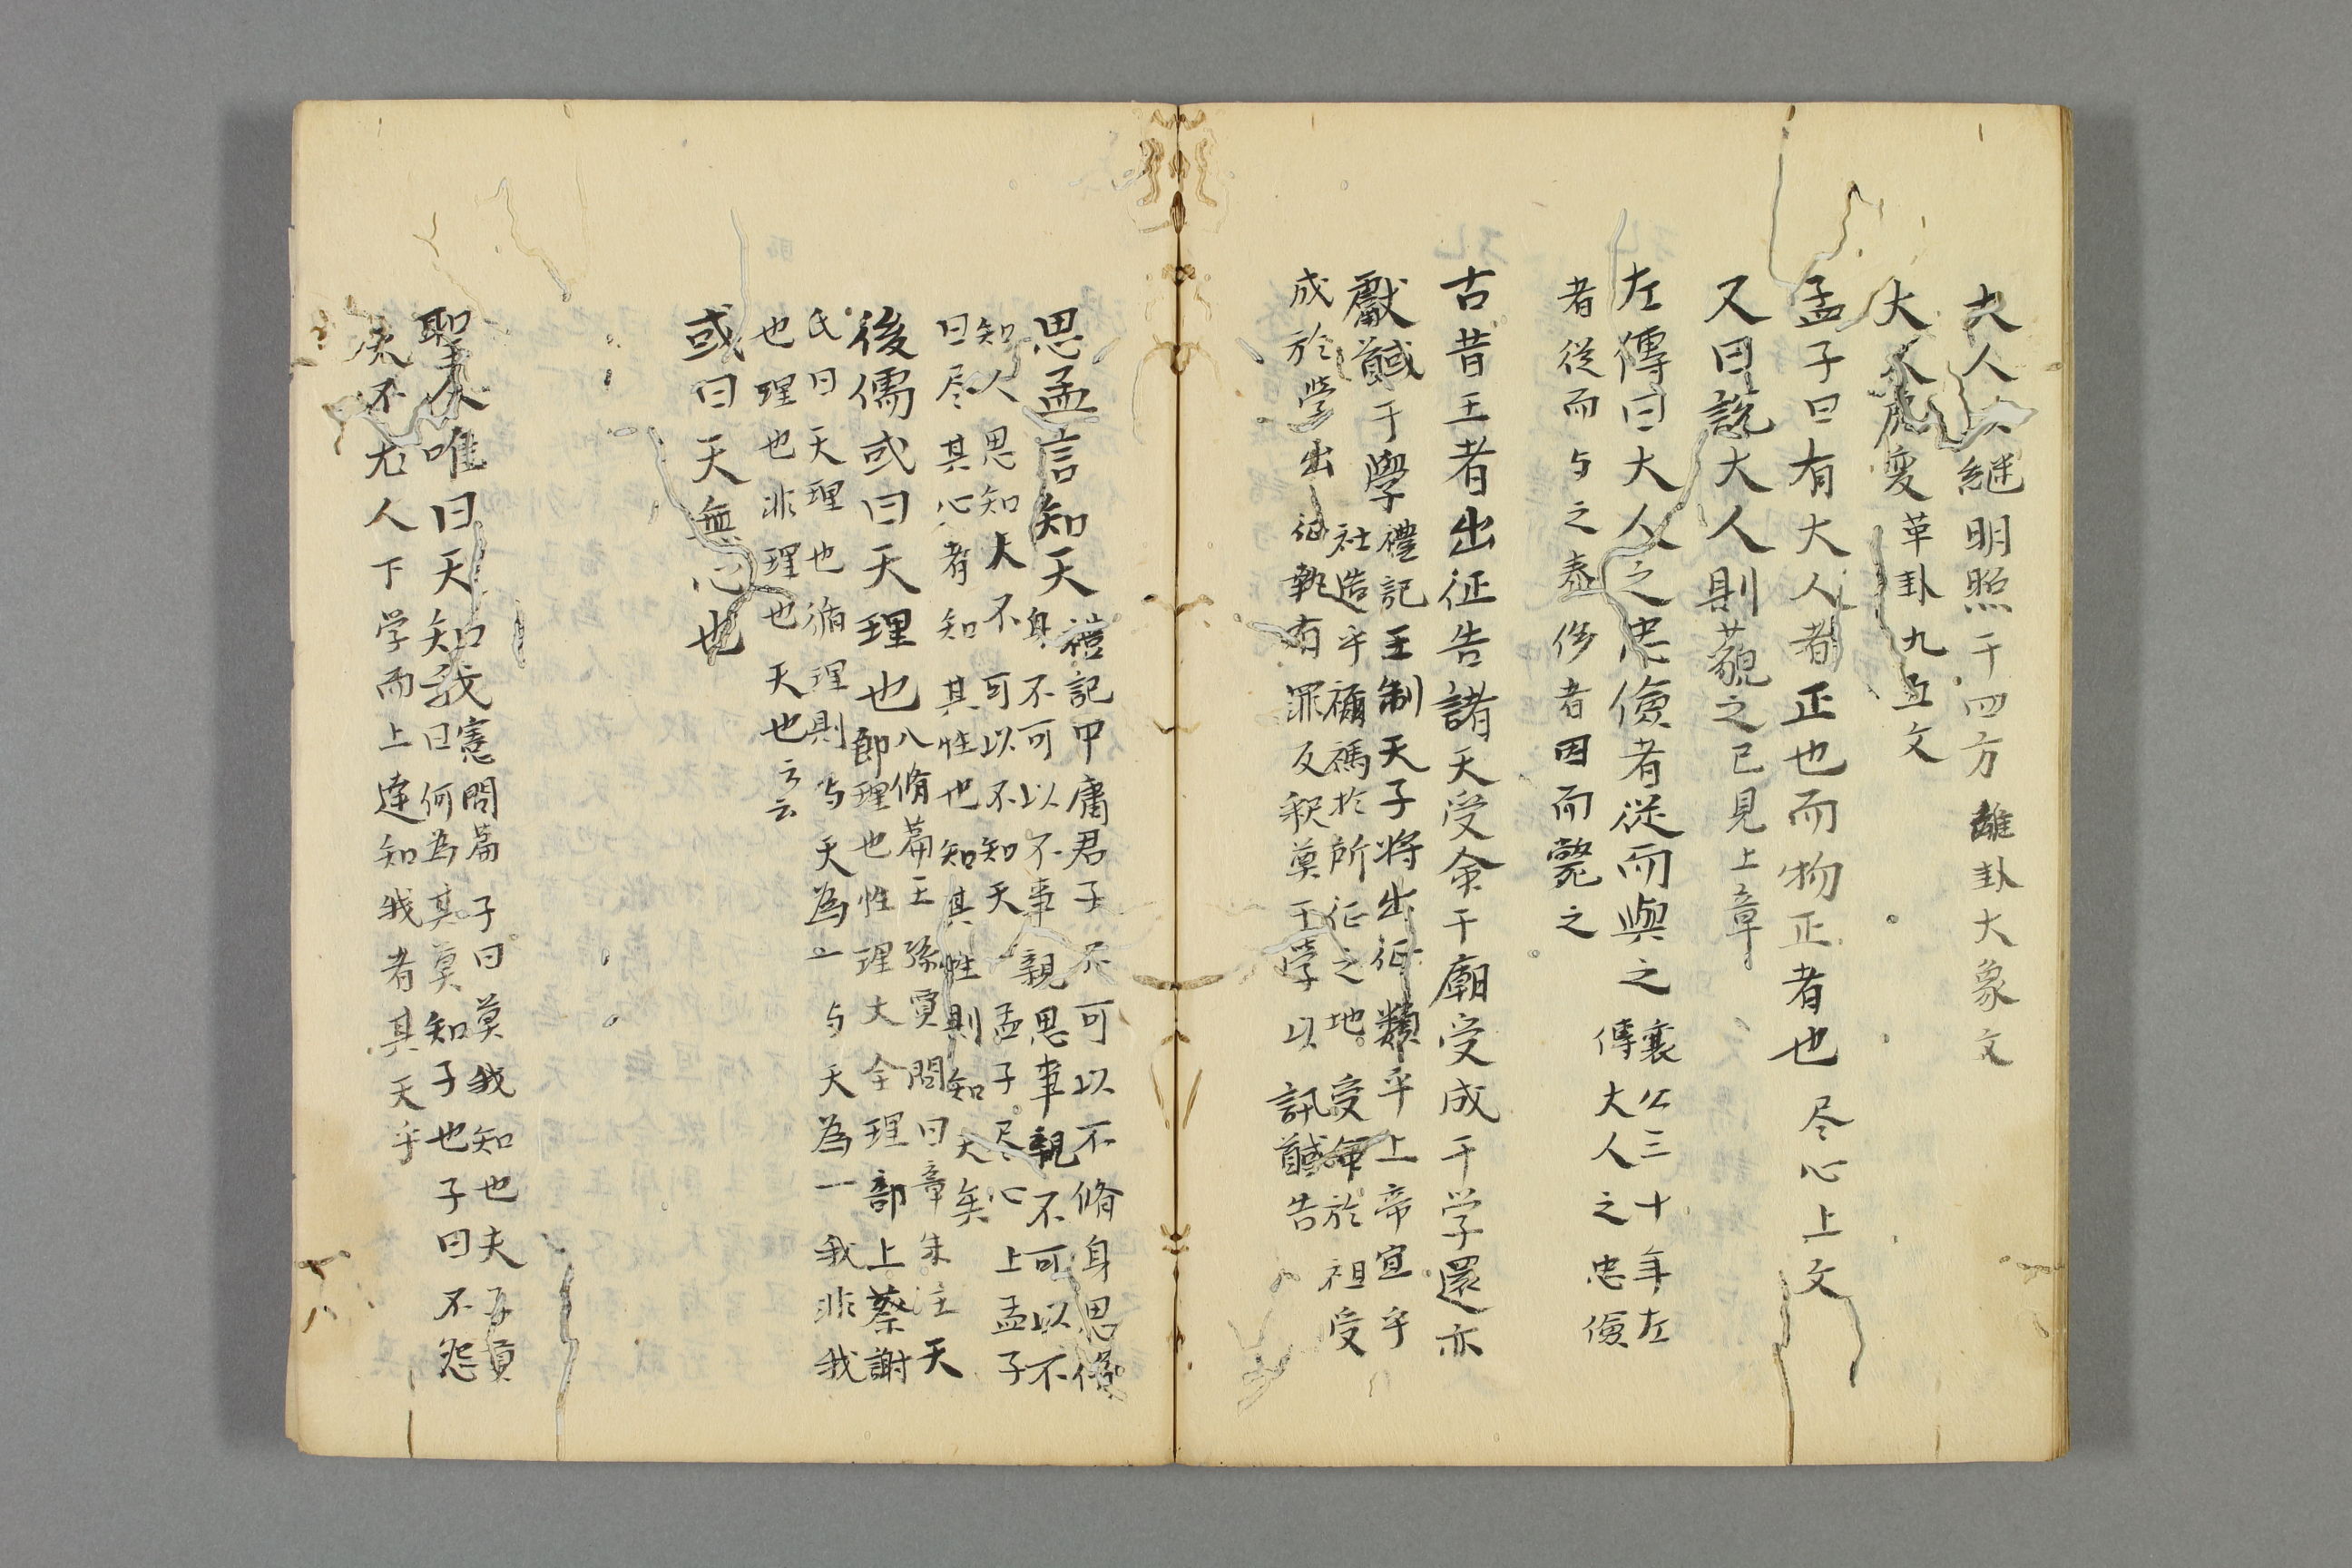 大人以継明照于四方 離卦大象文
大人虎変 革卦九五文
孟子曰有大人者正也而物正者也 尽心上文
又曰説大人則藐之 已見上章
左傳曰大人之忠儉者從而與之 襄公三十年左
傳大人之忠儉
者従而与之泰侈者因而斃之
古昔王者出征告諸天受命于廟受成于学還亦
獻馘于學 禮記王制天子将出征類乎上帝宜乎
社造乎禰禡於所征之地受命於祖受
成於学出征執有罪反釈奠于学以訊馘告
思孟言知天 禮記中庸君子不可以不脩身思脩
身不可以不事親思事親不可以不
知人思知人不可以不知天 孟子尽心上孟子
曰尽其心者知其性也知其性則知天矣
後儒或曰天理也 八佾篇王孫賈問曰章朱注天
即理也性理大全理部上蔡謝
氏曰天理也循理則与天為一与天為一我非我
也理也非理也天也云云
或曰天無心也
聖人唯曰天知我 憲問篇子曰莫我知也夫子貢
曰何為其莫知子也子曰不怨
天不尤人下学而上達知我者其天乎